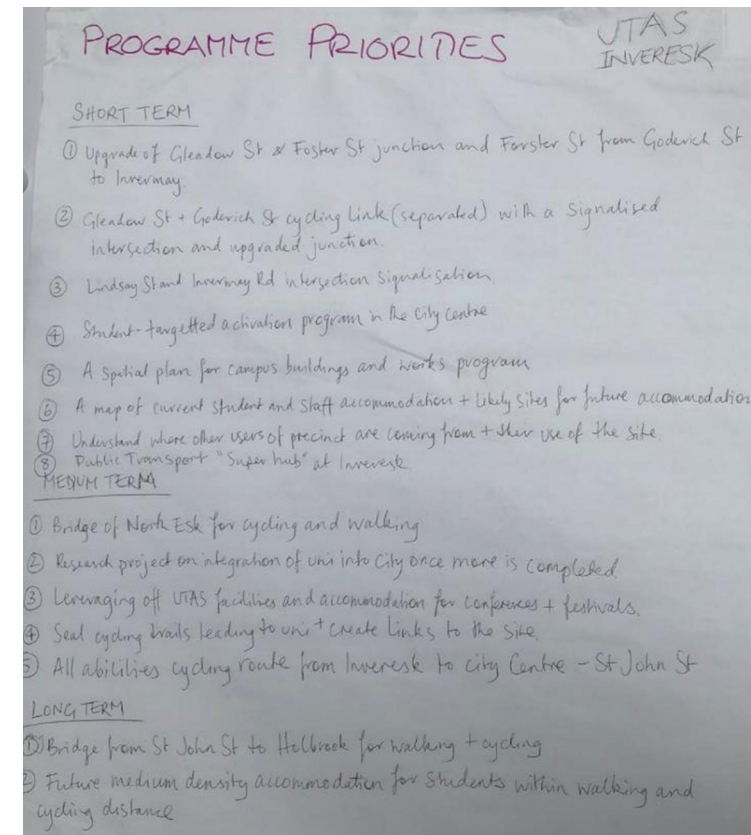 PROGRAMME PRIORITIES
UTAS
INVERESK
SHORT TERM
① Upgrade of Gleadow St & Foster St junction and Forster St from Goderich St
to Invermay.
② Gleadow St + Goderich St cycling link (separated) with a Signalised
intersection and upgraded junction.
③ Lindsay St and Invermay Rd intersection signalisation.
④ Student-targetted activation program in the city centre
⑤ A spatial plan for campus buildings and works program
⑥ A map of current student and staff accommodation + likely sites for future accommodation
⑦ Understand where other users of precinct are coming from + their use of the site.
⑧ Public Transport "Super hub" at Inveresk
MEDIUM TERM
① Bridge of North Esk for cycling and walking
② Research project on integration of uni into City once move is completed.
③ Leveraging off UTAS facilities and accommodation for conferences + festivals.
④ Seal cycling trails leading to uni + create links to the site.
⑤ All abilities cycling route from Inveresk to city Centre - St John St
LONG TERM
① Bridge from St John St to Holbrook for walking + cycling
② Future medium density accommodation for students within walking and
cycling distance